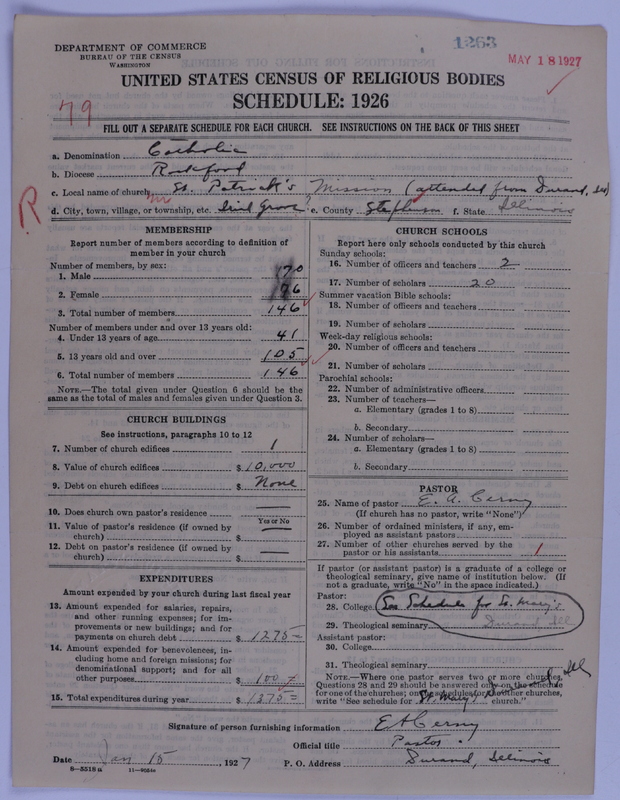 DEPARTMENT OF COMMERCE
BUREAU OF THE CENSUS
WASHINGTON
1263
MAY 18 1927
UNITED STATES CENSUS OF RELIGIOUS BODIES
SCHEDULE: 1926
79
FILL OUT A SEPARATE SCHEDULE FOR EACH CHURCH. SEE INSTRUCTIONS ON THE BACK OF THIS SHEET
a. Denomination Catholic
b. Diocese Rockford
c. Local name of church St. Patrick's Mission (attended from Durand, Ill)
R
d. City, town, village, or township, etc. Irish Grove e. County Stephenson f. State Illinois
MEMBERSHIP
Report number of members according to definition of member in your church
Number of members, by sex:
1. Male 70
2. Female 76
3. Total number of members 146
Number of members under and over 13 years old:
4. Under 13 years of age 41
5. 13 years old and over 105
6. Total number of members 146
NOTE.—The total given under Question 6 should be the same as the total of males and females given under Question 3.
CHURCH BUILDINGS
See instructions, paragraphs 10 to 12
7. Number of church edifices 1
8. Value of church edifices $ 10,000
9. Debt on church edifices $ None
10. Does church own pastor's residence?
Yes or No
11. Value of pastor's residence (if owned by church) $
12. Debt on pastor's residence (if owned by church) $
EXPENDITURES
Amount expended by your church during last fiscal year
13. Amount expended for salaries, repairs, and other running expenses; for improvements or new buildings; and for payments on church debt $ 1275
14. Amount expended for benevolences, including home and foreign missions; for denominational support; and for all other purposes $ 100
15. Total expenditures during year $ 1375
CHURCH SCHOOLS
Report here only schools conducted by this church
Sunday schools:
16. Number of officers and teachers 2
17. Number of scholars 20
Summer vacation Bible schools:
18. Number of officers and teachers
19. Number of scholars
Week-day religious schools:
20. Number of officers and teachers
21. Number of scholars
Parochial schools:
22. Number of administrative officers
23. Number of teachers—
a. Elementary (grades 1 to 8)
b. Secondary
24. Number of scholars—
a. Elementary (grades 1 to 8)
b. Secondary
PASTOR
25. Name of pastor E. A. Cerny
(If church has no pastor, write "None")
26. Number of ordained ministers, if any, employed as assistant pastors
27. Number of other churches served by the pastor or his assistants 1
If pastor (or assistant pastor) is a graduate of a college or theological seminary, give name of institution below. (If not a graduate, write "No" in the space indicated.)
Pastor:
28. College See Schedule for St. Mary's
29. Theological seminary Durand Ill
Assistant pastor:
30. College
31. Theological seminary
NOTE.—Where one pastor serves two or more churches, Questions 28 and 29 should be answered only on the schedule for one of the churches; on the schedules for the other churches, write "See schedule for St. Mary's Durand Ill church."
Signature of person furnishing information E A Cerny
Official title Pastor.
Date Jan 15, 1927 P. O. Address Durand, Illinois
8—5518a 11—9224a